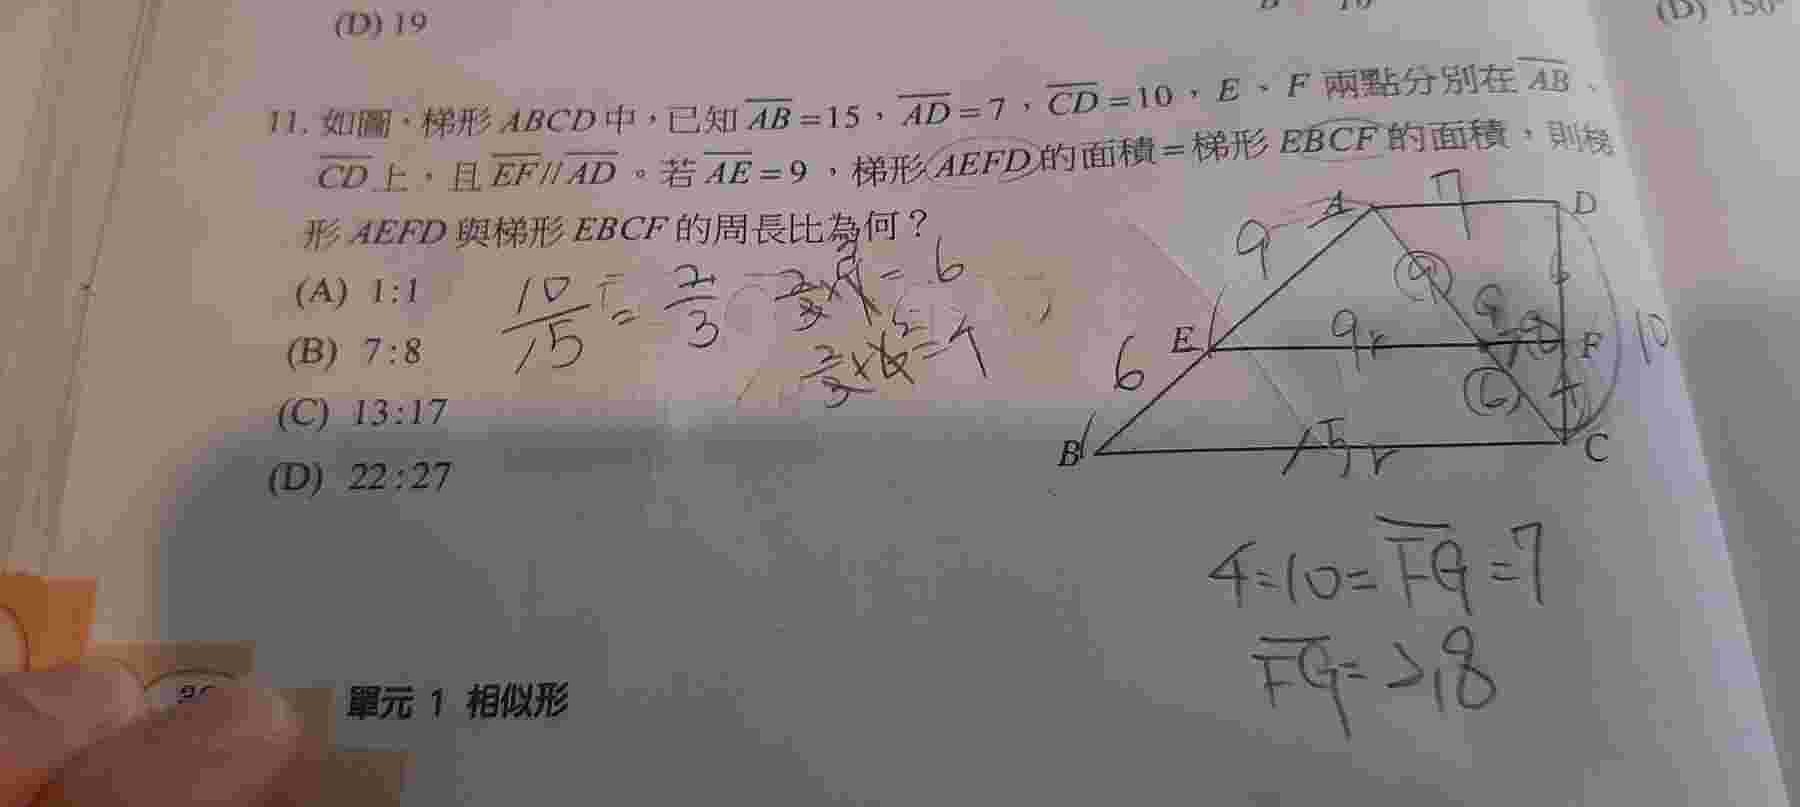 (D) 19
10
(D) 150°
11. 如圖，梯形 ABCD 中，已知 AB=15，AD=7，CD=10，E、F 兩點分別在 AB、
CD 上，且 EF//AD。若 AE=9，梯形 AEFD 的面積=梯形 EBCF 的面積，則梯
形 AEFD 與梯形 EBCF 的周長比為何？
(A) 1:1
(B) 7:8
(C) 13:17
(D) 22:27
10/15 = 2/3
2/3×9=6
2/3×6=4
A 7 D
9 9 6
E 9r G 2.8 F 10
6 6 4
B 15r C
4=10=FG=7
FG=2.8
單元 1 相似形